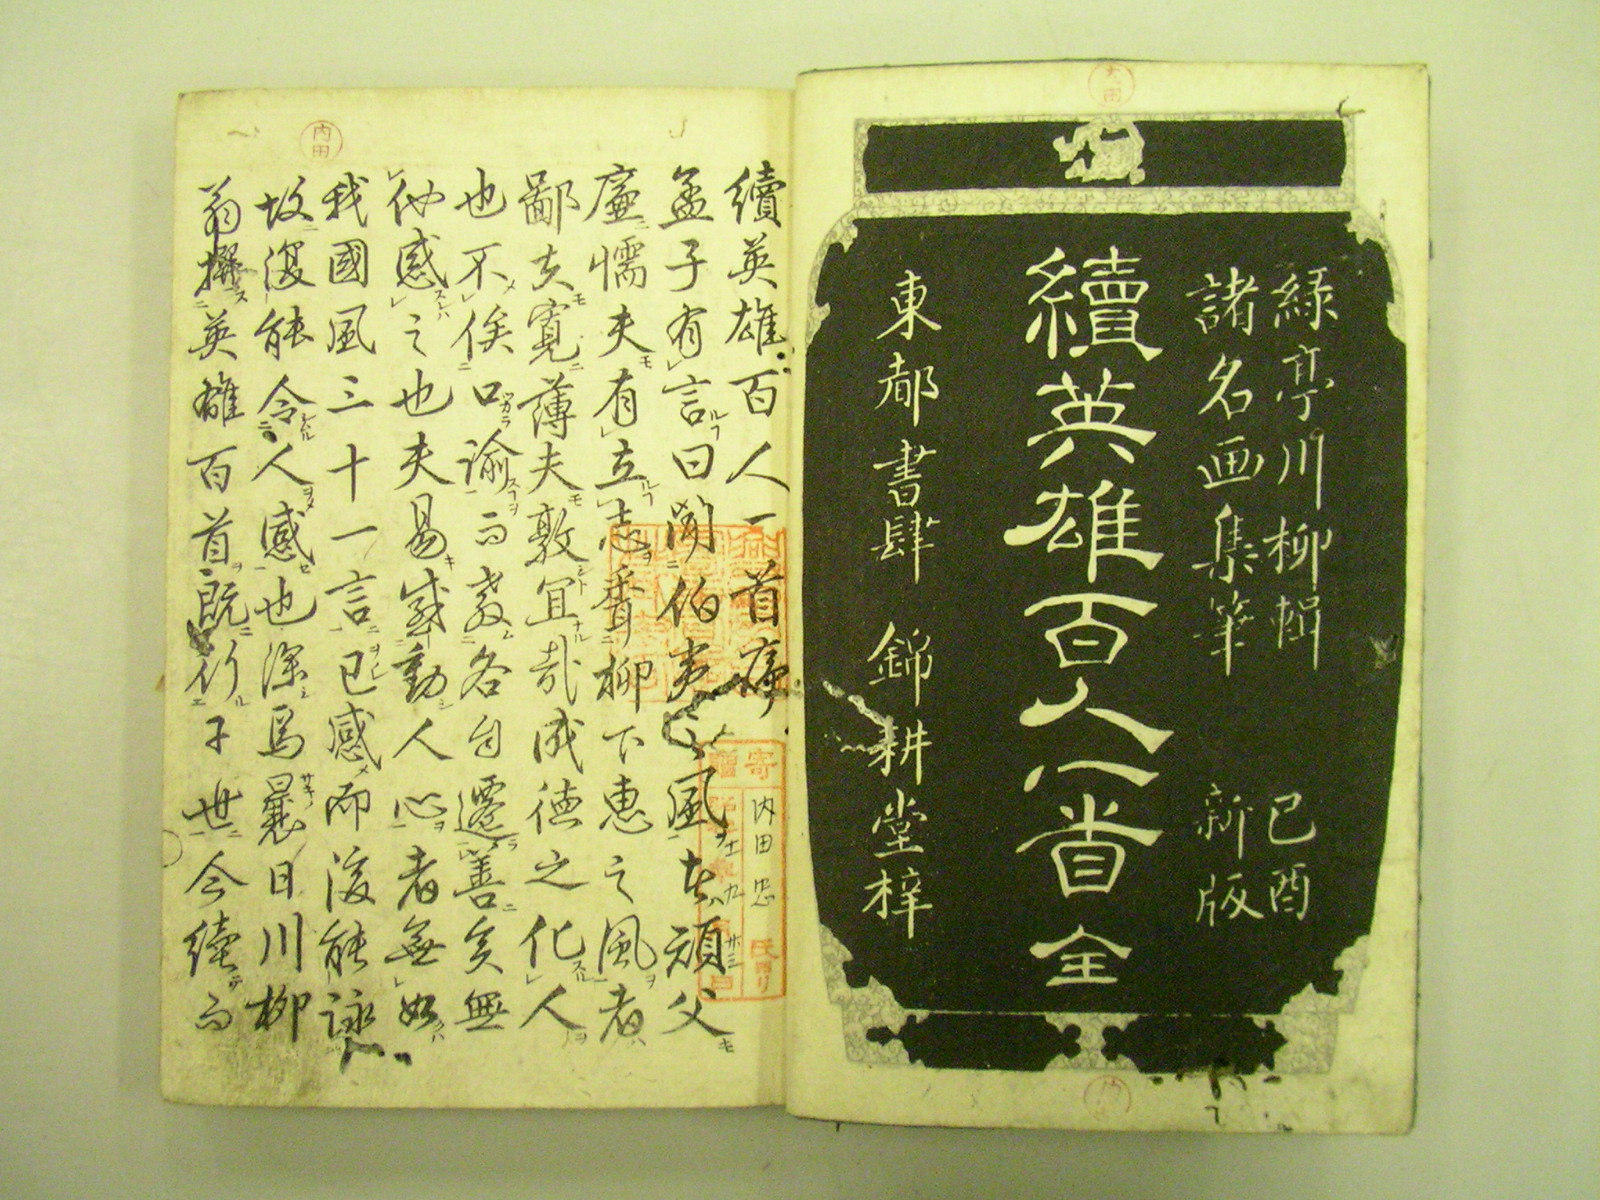 緑亭川柳輯 己酉
諸名画集筆 新版
續英雄百人一首 全
東都書肆 錦耕堂梓
續英雄百人一首序
孟子有言曰聞伯夷之風者頑父
廉懦夫有立志聞柳下惠之風者
鄙夫寛薄夫敦宜哉成徳之化人
也不俟口諭而教各自遷善矣無
他感之也夫易感動人心者無如
我國風三十一言已感而後能詠
故復能令人感也深焉曩日川柳
翁撰英雄百首既行于世今續而
寄贈
内田忠氏
内田